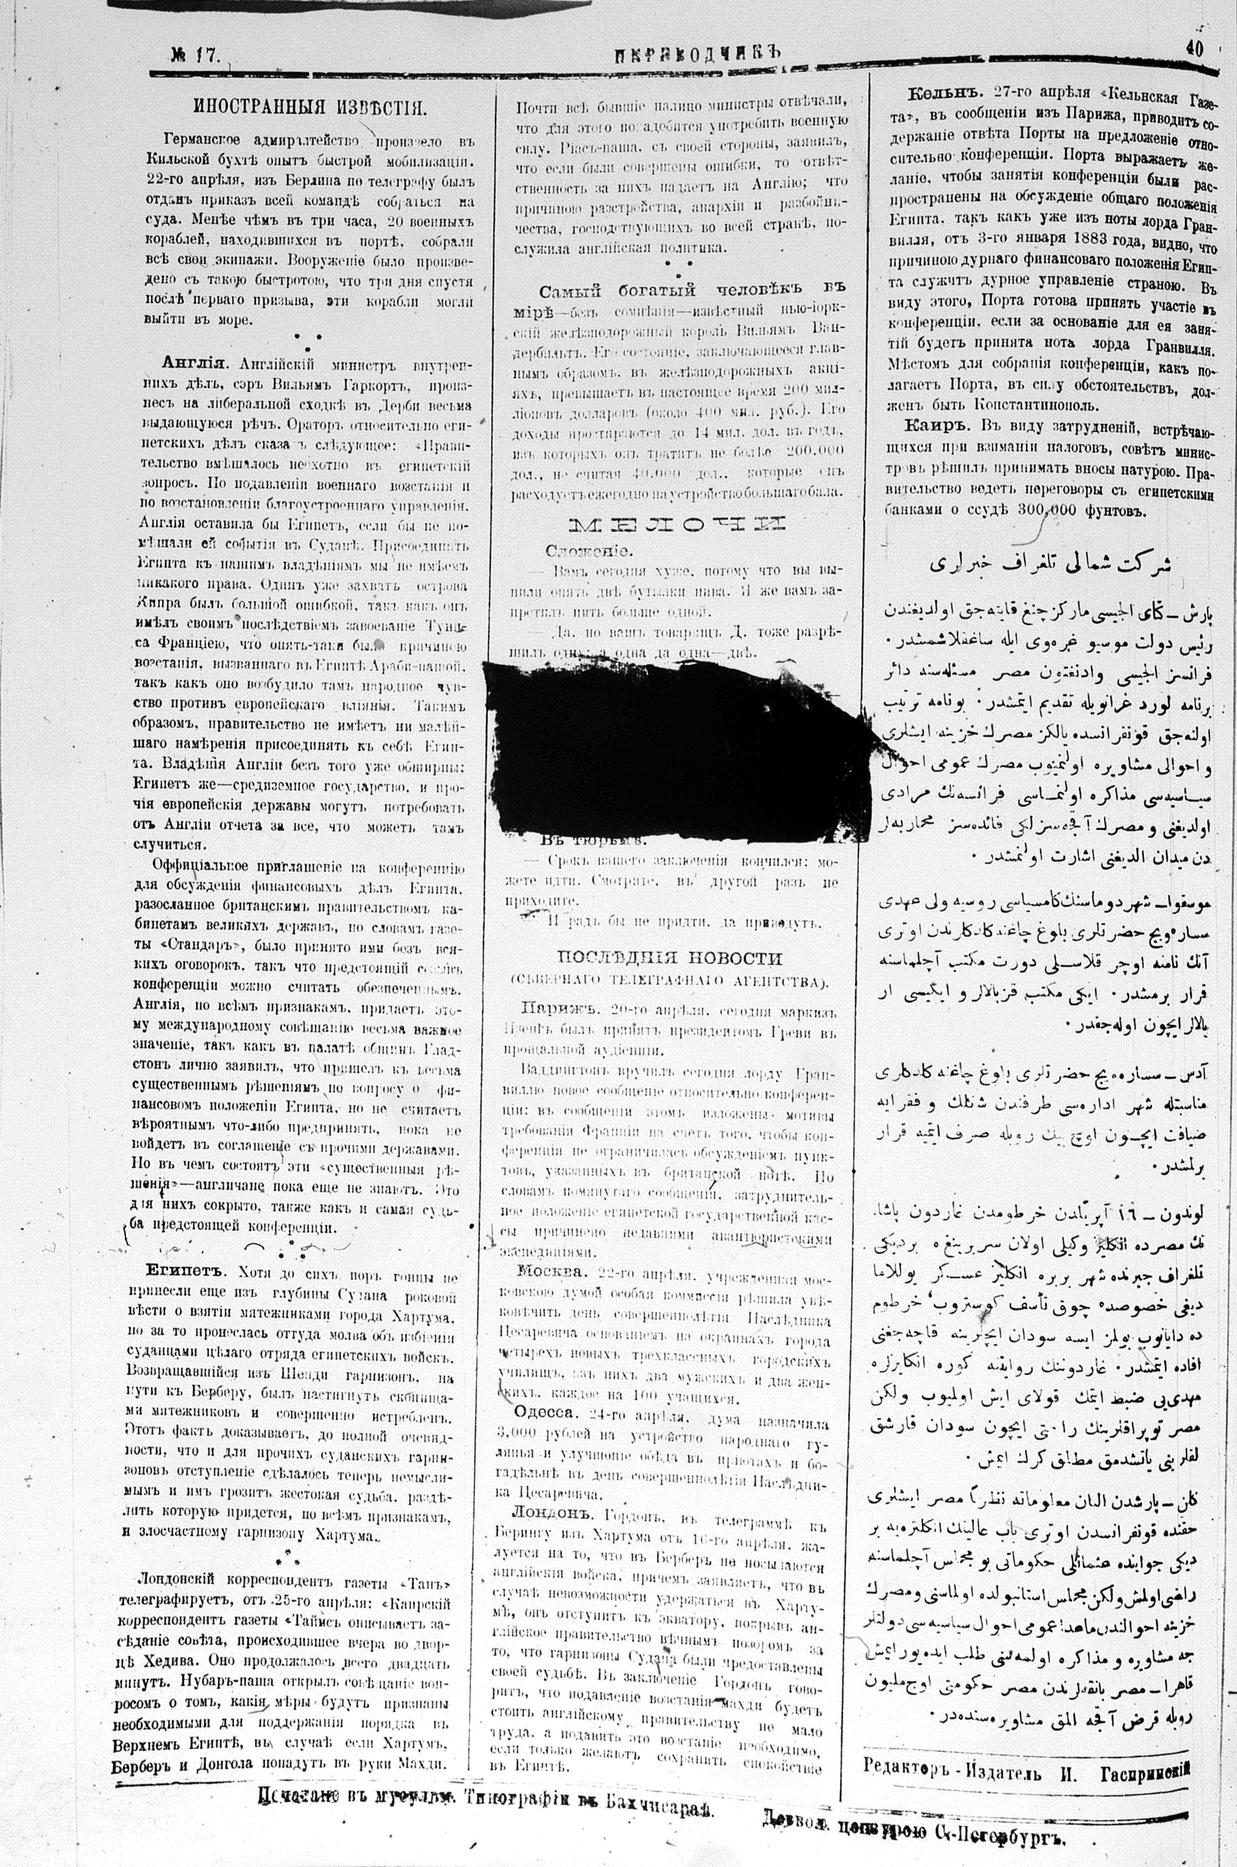 № 17.
ПЕРЕВОДЧИКЪ
40
ИНОСТРАННЫЯ ИЗВѢСТІЯ.
Германское адмиралтейство произвело въ
Кильской бухтѣ опытъ быстрой мобилизаціи.
22-го апрѣля, изъ Берлина по телеграфу былъ
отданъ приказъ всей командѣ собраться на
суда. Менѣе чѣмъ въ три часа, 20 военныхъ
кораблей, находившихся въ портѣ, собрали
всѣ свои экипажи. Вооруженіе было произве-
дено съ такою быстротою, что три дня спустя
послѣ перваго призыва, эти корабли могли
выйти въ море.
Англія. Англійскій министръ внутрен-
нихъ дѣлъ, сэръ Вильямъ Гаркортъ, произ-
несъ на либеральной сходкѣ въ Дерби весьма
выдающуюся рѣчъ. Ораторъ относительно еги-
петскихъ дѣлъ сказалъ слѣдующее: «Прави-
тельство вмѣшалось неохотно въ египетскій
вопросъ. По подавленіи военнаго возстанія и
по возстановленіи благоустроеннаго управленія.
Англія оставила бы Египетъ, если бы не по-
мѣшали ей событія въ Суданѣ. Присоединить
Египта къ нашимъ владѣніямъ мы не имѣемъ
никакого права. Одинъ уже захватъ острова
Кипра былъ большой ошибкой, такъ какъ онъ
имѣлъ своимъ послѣдствіемъ завоеваніе Туни-
са Франціею, что опять-таки было причиною
возстанія, вызваннаго въ Египтѣ Араби-пашой,
такъ какъ оно возбудило тамъ народное чув-
ство противъ европейскаго вліянія. Такимъ
образомъ, правительство не имѣетъ ни малѣй-
шаго намѣренія присоединять къ себѣ Егип-
та. Владѣнія Англіи безъ того уже обширны;
Египетъ же—средиземное государство, и про-
чія европейскія державы могутъ потребовать
отъ Англіи отчета за все, что можетъ тамъ
случиться.
Оффиціальное приглашеніе на конференцію
для обсужденія финансовыхъ дѣлъ Египта,
разосланное британскимъ правительствомъ ка-
бинетамъ великихъ державъ, по словамъ газе-
ты «Стандаръ», было принято ими безъ вся-
кихъ оговорокъ, такъ что предстоящій созывъ
конференціи можно считать обезпеченнымъ.
Англія, по всѣмъ признакамъ, придаетъ это-
му международному совѣщанію весьма важное
значеніе, такъ какъ въ палатѣ общинъ Глад-
стонъ лично заявилъ, что пришелъ къ весьма
существеннымъ рѣшеніямъ по вопросу о фи-
нансовомъ положеніи Египта, но не считаетъ
вѣроятнымъ что-либо предпринять, пока не
войдетъ въ соглашеніе съ прочими державами.
Но въ чемъ состоятъ эти «существенныя рѣ-
шенія»—англичане пока еще не знаютъ. Это
для нихъ сокрыто, также какъ и самая судь-
ба предстоящей конференціи.
Египетъ. Хотя до сихъ поръ гонцы не
принесли еще изъ глубины Судана роковой
вѣсти о взятіи мятежниками города Хартума,
но за то пронеслась оттуда молва объ избіеніи
суданцами цѣлаго отряда египетскихъ войскъ.
Возвращавшійся изъ Шенди гарнизонъ, на
пути къ Берберу, былъ настигнутъ скопища-
ми мятежниковъ и совершенно истребленъ.
Этотъ фактъ доказываетъ, до полной очевид-
ности, что и для прочихъ суданскихъ гарни-
зоновъ отступленіе сдѣлалось теперь немысли-
мымъ и имъ грозитъ жестокая судьба, раздѣ-
лить которую придется, по всѣмъ признакамъ,
и злосчастному гарнизону Хартума.
Лондонскій корреспондентъ газеты «Танъ»
телеграфируетъ, отъ 25-го апрѣля: «Каирскій
корреспондентъ газеты «Таймсъ описываетъ за-
сѣданіе совѣта, происходившее вчера во двор-
цѣ Хедива. Оно продолжалось всего двадцать
минутъ. Нубаръ-паша открылъ совѣщаніе воп-
росомъ о томъ, какія мѣры будутъ признаны
необходимыми для поддержанія порядка въ
Верхнемъ Египтѣ, въ случаѣ если Хартумъ,
Берберъ и Донгола попадутъ въ руки Махди.
Почти всѣ бывшіе налицо министры отвѣчали,
что для этого понадобится употребить военную
силу. Ріасъ-паша, съ своей стороны, заявилъ,
что если были совершены ошибки, то отвѣт-
ственность за нихъ падаетъ на Англію; что
причиною разстройства, анархіи и разбойни-
чества, господствующихъ во всей странѣ, по-
служила англійская политика.
Самый богатый человѣкъ въ
мірѣ—безъ сомнѣнія—извѣстный нью-іорк-
скій желѣзнодорожный король Вильямъ Ван-
дербильтъ. Его состояніе, заключающееся глав-
нымъ образомъ, въ желѣзнодорожныхъ акці-
яхъ, превышаетъ въ настоящее время 200 мил-
ліоновъ долларовъ (около 400 мил. руб.). Его
доходы простираются до 14 мил. дол. въ годъ,
изъ которыхъ онъ тратитъ не болѣе 200,000
дол., не считая 40,000 дол., которые онъ
расходуетъ ежегодно на устройство большаго бала.
МЕЛОЧИ
Сложеніе.
— Вамъ сегодня хуже, потому что вы вы-
пили опять двѣ бутылки пива. Я же вамъ за-
претилъ пить больше одной.
— Да, но вашъ товарищъ Д. тоже разрѣ-
шилъ одну; а одна да одна—двѣ.
Въ тюрьмѣ.
— Срокъ вашего заключенія кончился; мо-
жете идти. Смотрите, въ другой разъ не
приходите.
— И радъ бы не придти, да приведутъ.
ПОСЛѢДНІЯ НОВОСТИ
(СѢВЕРНАГО ТЕЛЕГРАФНАГО АГЕНТСТВА).
Парижъ. 20-го апрѣля, сегодня маркизъ
былъ принятъ президентомъ Греви въ
прощальной аудіенціи.
Ваддингтонъ вручилъ сегодня лорду Гран-
виллю новое сообщеніе относительно конферен-
ціи; въ сообщеніи этомъ изложены мотивы
требованія Франціи на счетъ того, чтобы кон-
ференція не ограничилась обсужденіемъ пунк-
товъ, указанныхъ въ британской нотѣ. По
словамъ помянутаго сообщенія, затруднитель-
ное положеніе египетской государственной кас-
сы причинено недавними авантюристскими
экспедиціями.
Москва. 22-го апрѣля, учрежденная мос-
ковскою думой особая коммиссія рѣшила увѣ-
ковѣчить день совершеннолѣтія Наслѣдника
Цесаревича основаніемъ на окраинахъ города
четырехъ новыхъ трехклассныхъ городскихъ
училищъ, изъ нихъ два мужскихъ и два жен-
скихъ, каждое на 100 учащихся.
Одесса. 24-го апрѣля, дума назначила
3,000 рублей на устройство народнаго гу-
лянья и улучшеніе обѣда въ пріютахъ и бо-
гадѣльнѣ въ день совершеннолѣтія Наслѣдни-
ка Цесаревича.
Лондонъ. Гордонъ, въ телеграммѣ къ
Берингу изъ Хартума отъ 16-го апрѣля, жа-
луется на то, что въ Берберъ не посылаются
англійскія войска, причемъ заявляетъ, что въ
случаѣ невозможности удержаться въ Харту-
мѣ, онъ отступитъ къ экватору, покрывъ ан-
глійское правительство вѣчнымъ позоромъ за
то, что гарнизоны Судана были предоставлены
своей судьбѣ. Въ заключеніе Гордонъ гово-
ритъ, что подавленіе возстанія махди будетъ
стоить англійскому правительству не мало
труда, а подавить это возстаніе необходимо,
если только желаютъ сохранить спокойствіе
въ Египтѣ.
Кельнъ. 27-го апрѣля «Кельнская Газе-
та», въ сообщеніи изъ Парижа, приводитъ со-
держаніе отвѣта Порты на предложеніе отно-
сительно конференціи. Порта выражаетъ же-
ланіе, чтобы занятія конференціи были рас-
пространены на обсужденіе общаго положенія
Египта, такъ какъ уже изъ ноты лорда Гран-
вилля, отъ 3-го января 1883 года, видно, что
причиною дурнаго финансоваго положенія Егип-
та служитъ дурное управленіе страною. Въ
виду этого, Порта готова принять участіе въ
конференціи, если за основаніе для ея заня-
тій будетъ принята нота лорда Гранвилля.
Мѣстомъ для собранія конференціи, какъ по-
лагаетъ Порта, въ силу обстоятельствъ, дол-
женъ быть Константинополь.
Каиръ. Въ виду затрудненій, встрѣчаю-
щихся при взиманіи налоговъ, совѣтъ минис-
тровъ рѣшилъ принимать вносы натурою. Пра-
вительство ведетъ переговоры съ египетскими
банками о ссудѣ 300,000 фунтовъ.
شركت شمالی تلغراف خبرلری
پارش ـ كتای الچیسی مارکز چنغ قایته‌جق اولدیغندن
رئیس دولت موسیو غره‌وی ایله ساغقلاشمشدر.
فرانسز الچیسی وادنغتون مصر مسئله‌سنه دائر
برنامه لورد غرانویله تقدیم ایتمشدر. بونامه ترتیب
اولنه‌جق قونفرانسده یالکز مصرك خزینه ایشلری
و احوالی مشاوره اولنمیوب مصرك عمومی احوال
سیاسیه‌سی مذاکره اولنماسی فرانسه‌نك مرادی
اولدیغنی و مصرك آقچه‌سزلکی فائده‌سز محاربه‌لر
دن میدان الدیغنی اشارت اولنمشدر.
موسقوا ـ شهر دوماسنك كامسیاسی روسیه ولی عهدی
حضرتلری بلوغ چاغنه کادکارندن اوتری
آنك نامنه اوچر قلاسلی دورت مکتب آچلماسنه
قرار برمشدر. ایکی مکتب قزبالالر و ایکیسی ار
بالالر ایچون اوله‌جقدر.
آدس ـ حضرتلری بلوغ چاغنه کادکلری
مناسبتله شهر اداره‌سی طرفندن شنلك و فقرایه
ضیافت ایچون اوچ بیك روبله صرف ایتمیه قرار
برلمشدر.
لوندون ـ ١٦ آپریلدن خرطومدن غاردون پاشا.
نك مصرده انکلیز وکیلی اولان سر برینغه بردیکی
تلغراف جبرنده شهر بربره انکلیز عسکر یوللاما
دیغی خصوصده چوق تأسف کوستروب، خرطوم
ده دایانوب بولمز ایسه سودان ایچلرینه قاچه‌جغنی
افاده ایتمشدر. غاردوننك روایتنه کوره انکلیزلره
مهدی‌یی ضبط ایتمك قولای ایش اولمیوب ولکن
مصر توپراقلرینك راحتی ایچون سودان قارشق
لقلرینی یاتشدرمق مطلق کرك ایمش.
کلن ـ پارشدن النان معلوماته نظراً مصر ایشلری
حقنده قونفرانسدن اوتری باب عالینك انکلتره‌یه بر
دیکی جوابنده عثمانلی حکوماتی بو مجلس آچلماسنه
راضی اولمش ولکن مجلس استانبولده اولماسنی ومصرك
خزینه احوالندن ماعدا عمومی احوال سیاسیه‌سی دولتلر
جه مشاوره و مذاکره اولمه‌لغنی طلب ایده‌یور ایمش
قاهرا ـ مصر بانقه‌لرندن مصر حکومتی اوچ ملیون
روبله قرض آقچه المق مشاوره‌سنده‌در.
Редакторъ-Издатель И. Гаспринскій
Печатано въ мусульм. Типографіи въ Бахчисараѣ.
Дозвол. цензурою С.-Петербургъ.